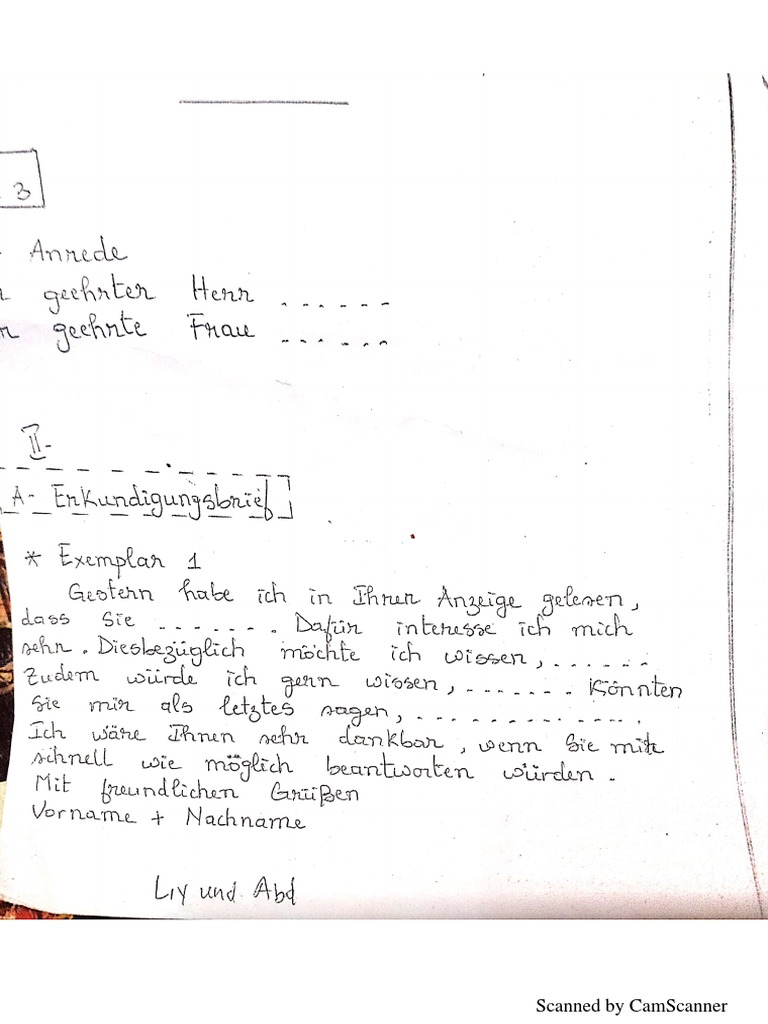 3
- Anrede
r geehrter Herr ......
r geehrte Frau ......
II-
A- Erkundigungsbrief
* Exemplar 1
Gestern habe ich in Ihrer Anzeige gelesen,
dass Sie ....... . Dafür interesse ich mich
sehr. Diesbezüglich möchte ich wissen, ......
Zudem würde ich gern wissen, ....... Könnten
Sie mir als letztes sagen, .............
Ich wäre Ihnen sehr dankbar, wenn Sie mir
schnell wie möglich beantworten würden.
Mit freundlichen Grüßen
Vorname + Nachname
Lıy und Abd
Scanned by CamScanner